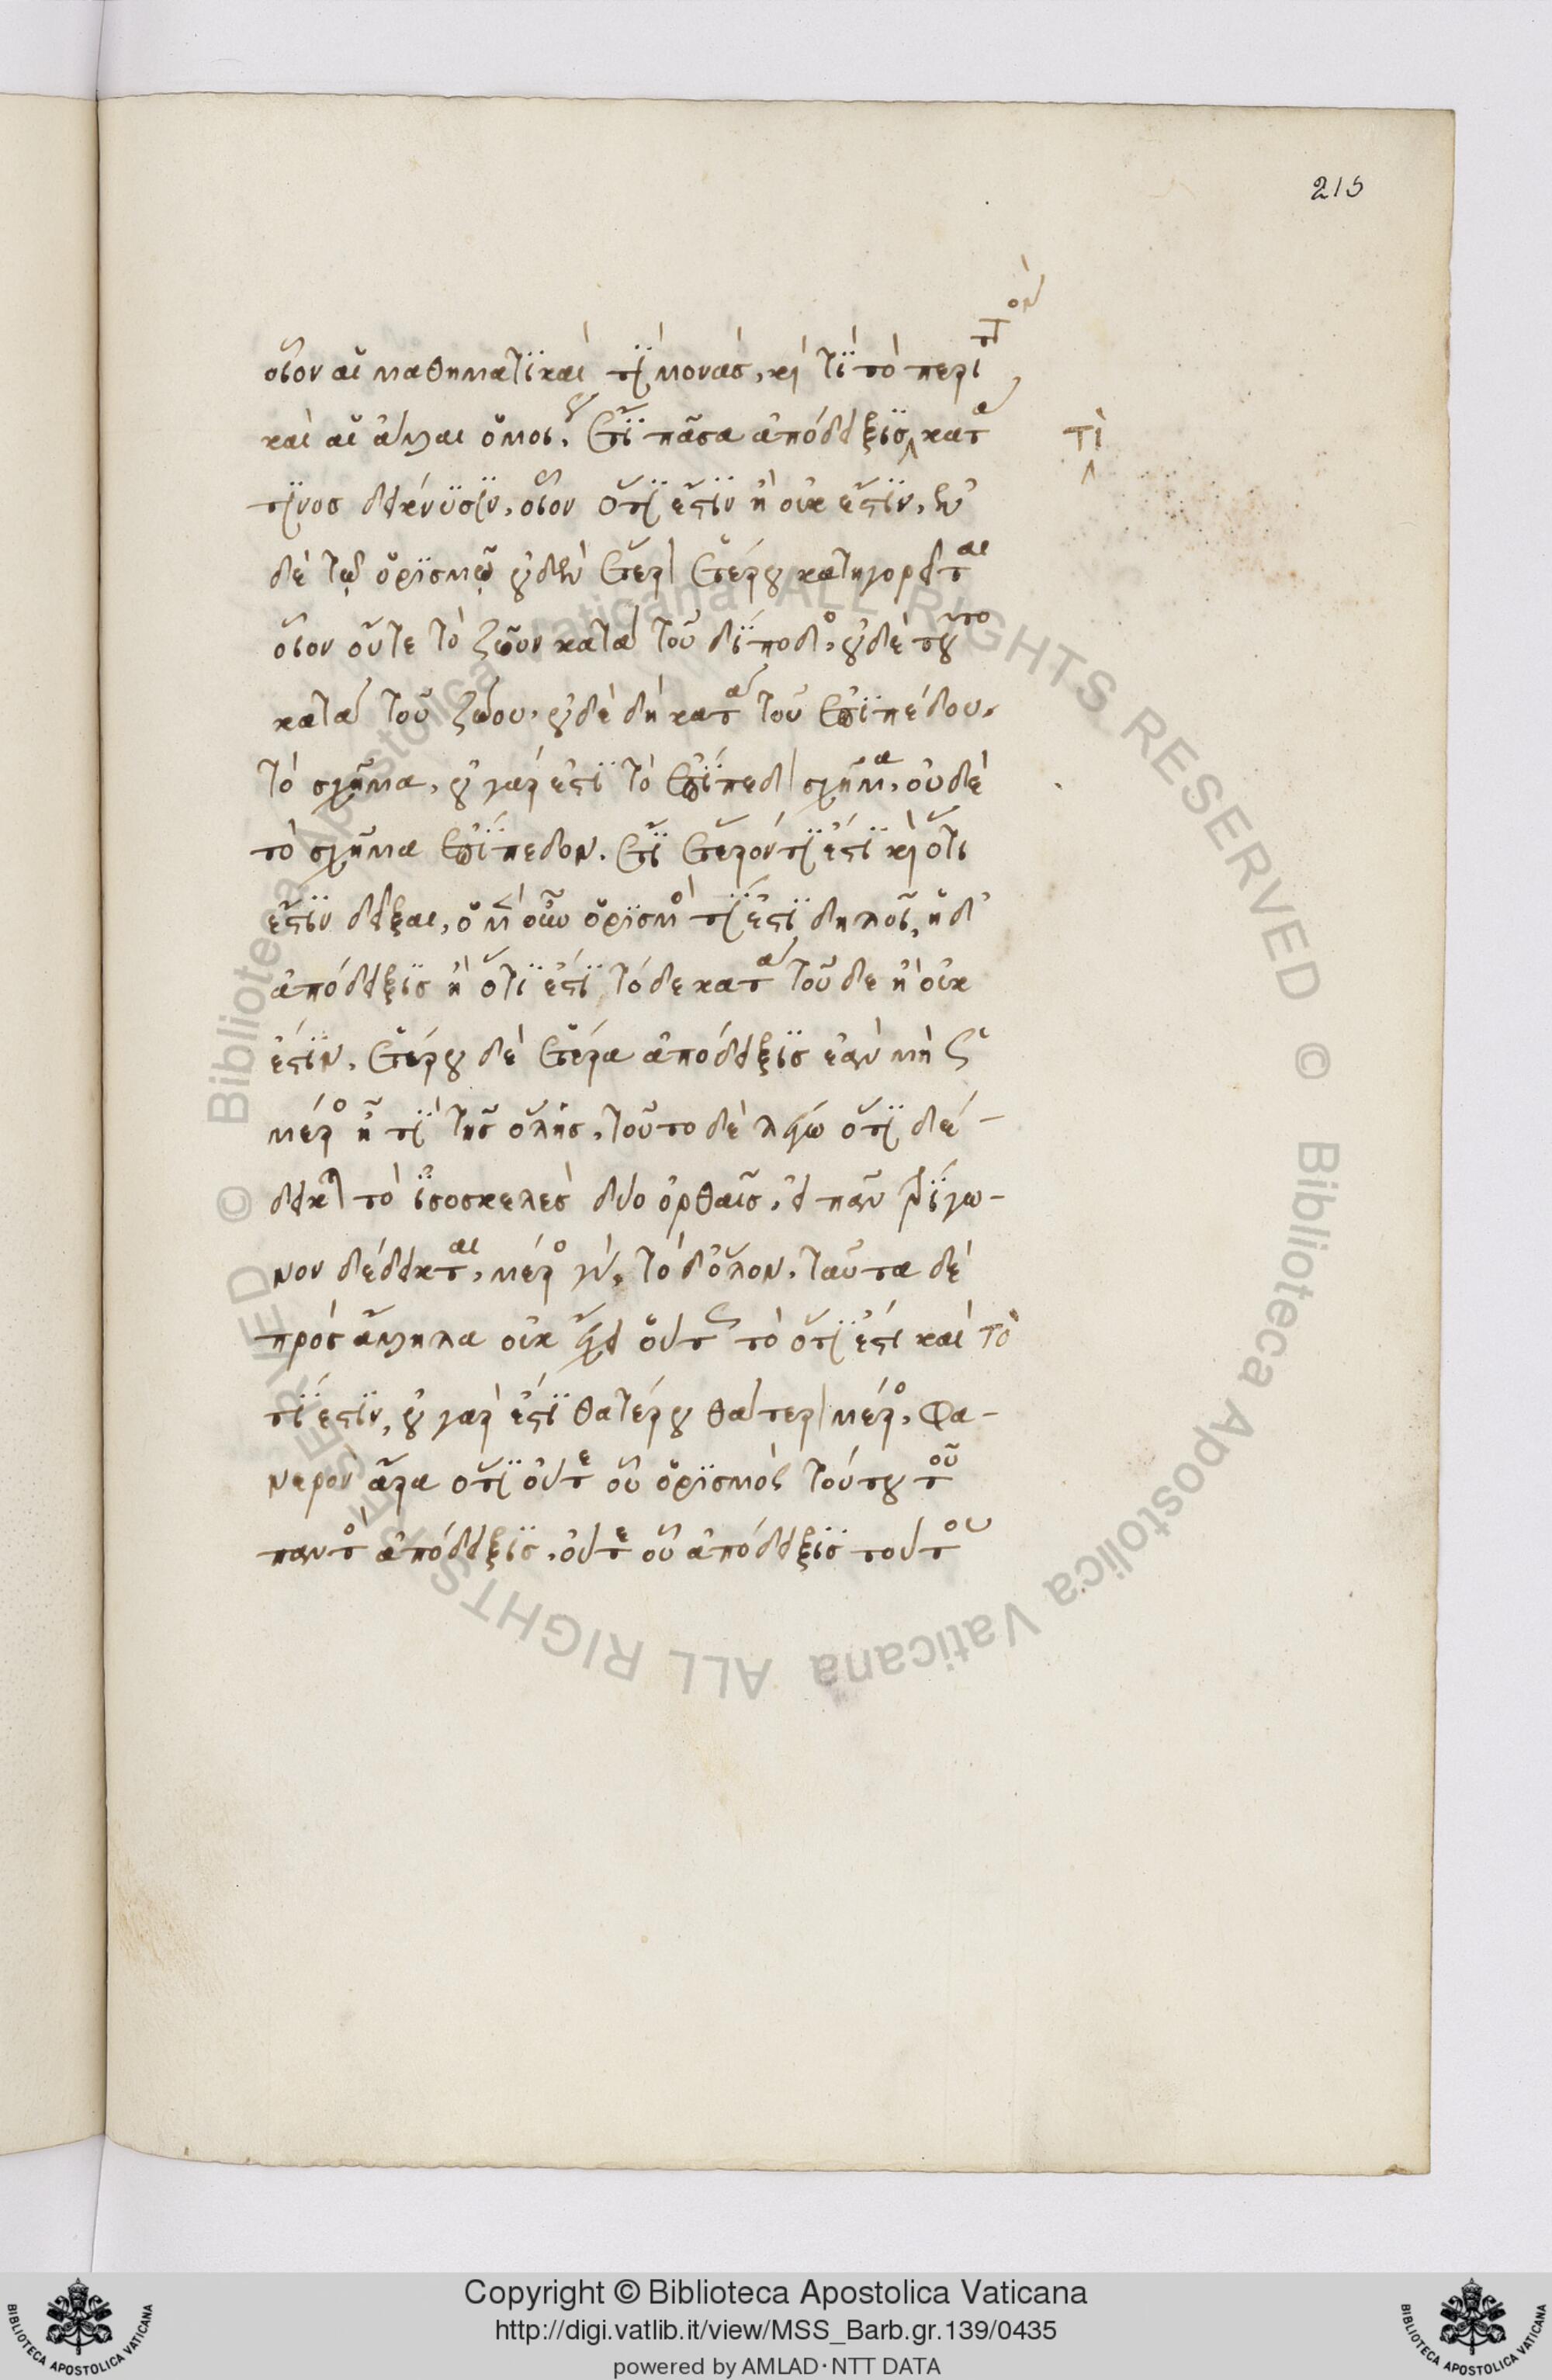 215
οἷον αἱ μαθηματϊκαὶ τῒ μονὰσ, κὶ τῒ τὸ περιττὸν
καὶ αἱ ἄλλαι ὅμοι. ἔτϊ πᾶσα ἀπόδειξϊσ κατὰ
τὶ
τϊνοσ δείκνυσϊν, οἷον ὅτϊ ἔστϊν ἢ οὐκ ἔστϊν, ἐν
δὲ τῷ ὁρϊσμῷ οὐδὲν ἕτερον ἑτέρου κατηγορεῖται
οἷον οὔτε τὸ ζῶον κατὰ τοῦ δΐποδος οὐδὲ τοῦτο
κατὰ τοῦ ζώου, οὐδὲ δὴ κατὰ τοῦ ἐπϊπέδου,
τὸ σχῆμα, οὐ γάρ ἐστϊ τὸ ἐπΐπεδον σχῆμα, οὐδὲ
τὸ σχῆμα ἐπΐπεδον. ἔτϊ ἕτερον τΐ ἐστϊ κὶ ὅτι
ἔστϊν δεῖξαι, ὁ μὲν οὖν ὁρϊσμὸς τΐ ἐστϊ δηλοῖ, ἡ δ'
ἀπόδειξϊσ ἢ ὅτϊ ἐστΐ τόδε κατὰ τοῦδε ἢ οὐκ
ἐστΐν. ἑτέρου δὲ ἑτέρα ἀπόδειξϊσ ἐὰν μὴ ὡς
μέρος ᾖ τῒ τῆσ ὅλησ. τοῦτο δὲ λέγω ὅτϊ δέ-
δεικται τὸ ἰσοσκελὲσ δύο ὀρθαῖσ, εἰ πᾶν τρΐγω-
νον δέδεικται, μέρος γὰρ, τὸ δ' ὅλον. ταῦτα δὲ
πρὸσ ἄλληλα οὐκ ἔχει οὕτως τὸ ὅτϊ ἐστὶ καὶ τὸ
τΐ ἐστϊν, οὐ γάρ ἐστϊ θατέρου θάτερον μέρος. φα-
νερὸν ἄρα ὅτϊ οὔτε οὗ ὁρϊσμὸς τούτου τοῦ
παντὸς ἀπόδειξϊσ, οὔτε οὗ ἀπόδειξϊσ τούτου
Copyright © Biblioteca Apostolica Vaticana
http://digi.vatlib.it/view/MSS_Barb.gr.139/0435
powered by AMLAD·NTT DATA
BIBLIOTECA APOSTOLICA VATICANA
BIBLIOTECA APOSTOLICA VATICANA
© Biblioteca Apostolica Vaticana ALL RIGHTS RESERVED © Biblioteca Apostolica Vaticana ALL RIGHTS RESERVED